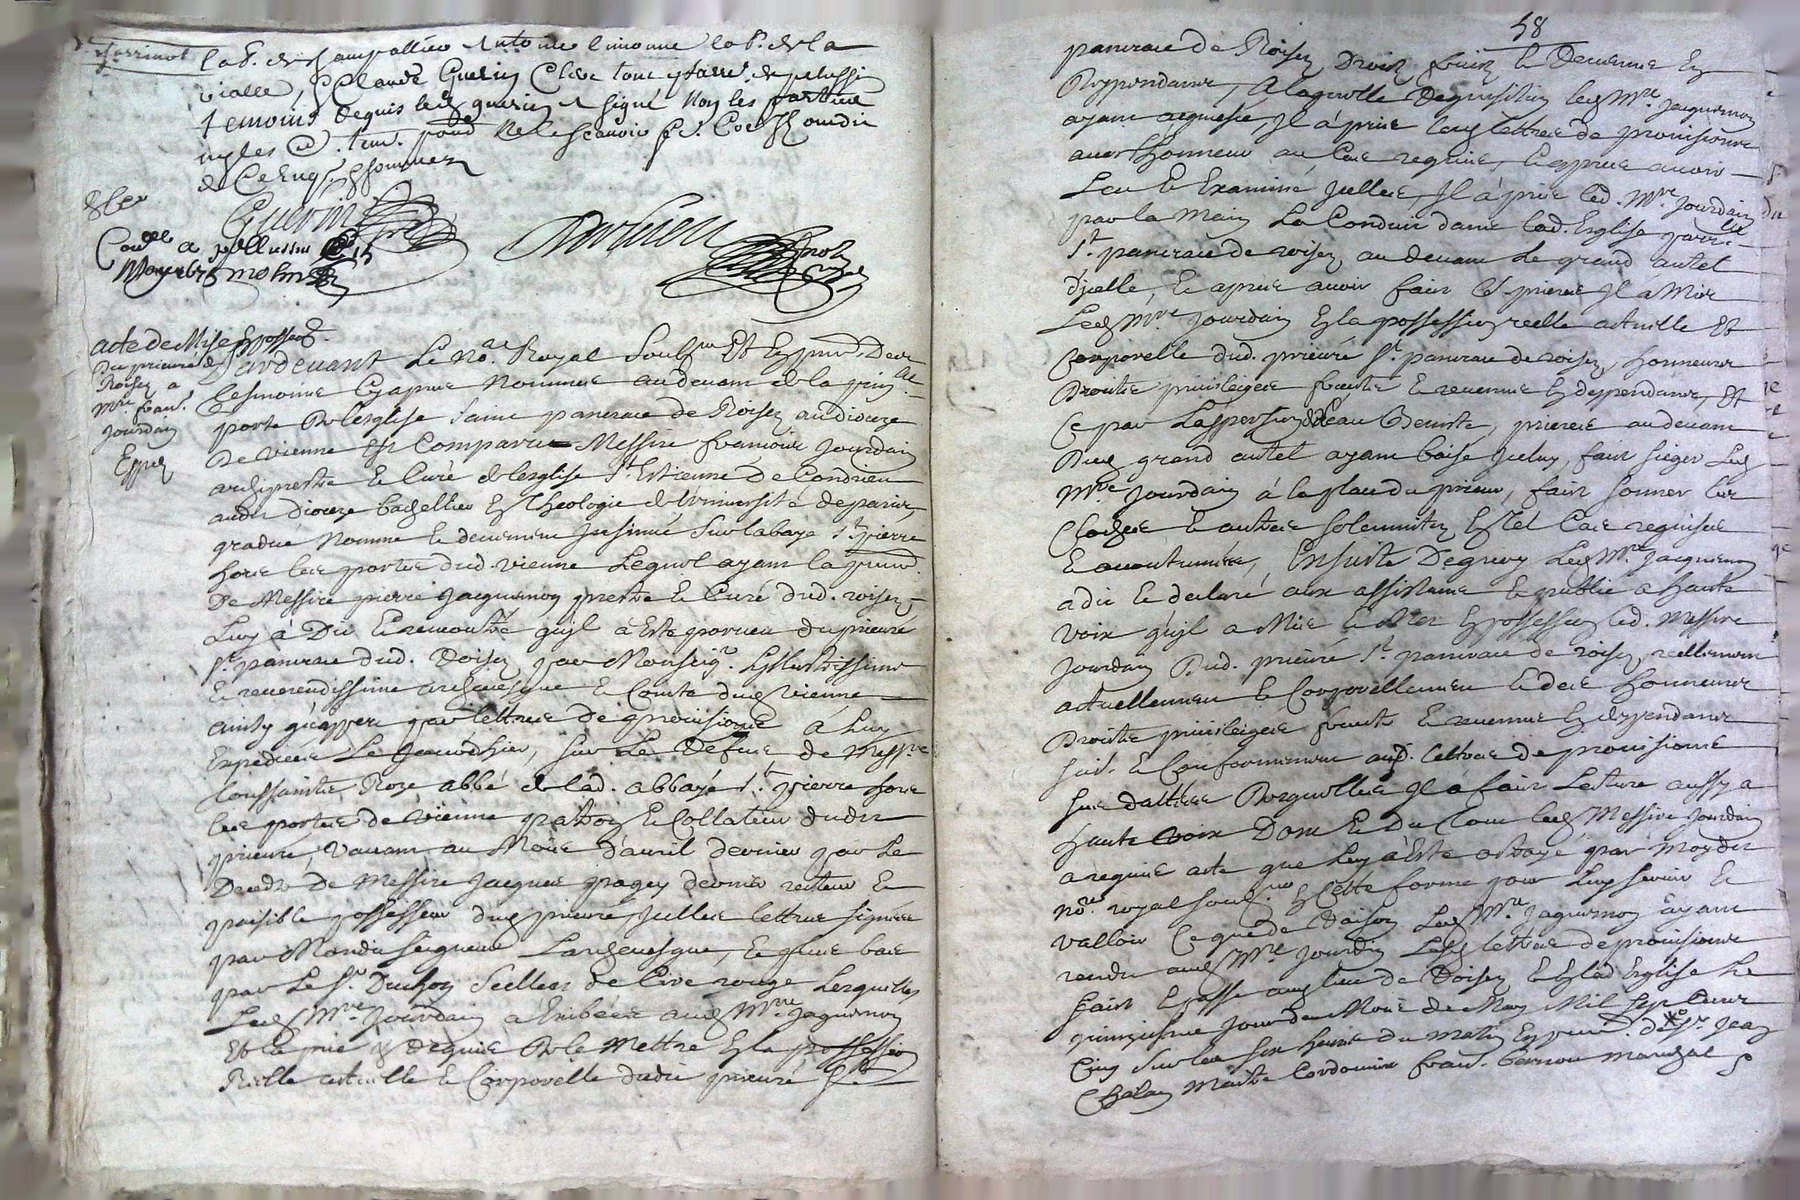 lab. de Champallier Antoine limonne lab. de la
vialle, Claude Guerin Clerc tous de pelussin
temoins dequis led. guerin a signé Non les parties
ny les pour ne le scavoir de Ce Enquis & sommez
Guerin
Con.lle a pellussin le
May 1675
acte de Mise En possess.
Du prieuré de
Roisey a
m.re fran.
Jourdan
Expié
Pardevant Le No.re Royal Soubs.né Et En pnce. Des
tesmoins Cy apres Nommes au devant de la prin.alle
porte de leglise saint pancrace de Roisey au dioceze
de vienne Est Comparu Messire francois Jourdan
archiprestre Et Curé de leglise S.t Estienne De Condrieu
audit dioceze bachellier En theologie de luniversité de paris,
gradué Nommé Et deuement Insinué Sur labaye S.t pierre
hors les portes dud. vienne Lequel ayant la pnce.
De Messire pierre Jaquemon prestre Et Curé dud. roisey
Luy à Dit Et remontré quil à Esté porveu du prieuré
S.t pancrace dud. Roisey par Monseig.r Lillustrissime
Et reverendissime archevesque Et Comte dud. vienne
ainsy quappert par lettres de provisions à Luy
Expediées Le Jourdhier, sur Le Refus de Mess.re
Toussaintz Roze abbé de lad. abbaye S.t pierre hors
les portes de vienne patron Et Collateur dudit
prieuré, Vacant au Mois davril dernier par Le
Deceds De Messire Jacques pagey dernier recteur Et
paisible possesseur dud. prieuré, Icelles lettres signées
par Mondit Seigneur Larchevesque, Et plus bas
par Le S.r Duchon Scellées de Cire rouge Lesquelles
Led. M.re Jourdan à Exibées aud. M.re Jaquemon
Et la prié & requis de le Mettre En la possession
Reelle actuelle Et Corporelle dudit prieuré S.t
58
pancrace de Roisey Droits fruits Et Revenus En
Deppendants, A laquelle Requisition led. M.re Jaquemon
ayant aquiessé, Il à pris lesd. lettres de provisions
avec Lhonneur au Cas requis, Et apres avoir
Leu Et Examiné Icelles, Il à pris led. M.re Jourdan
par la Main Et Conduit dans lad. Esglise parr.lle
S.t pancrace de roisey au devant Le grand autel
dicelle, Et apres avoir fait Les prieres Il a Mis
Led. M.re Jourdan En la possession reelle actuelle Et
Corporelle dud. prieuré S.t pancrace de roisey, honneurs
Droits privileiges fruits Et revenus En deppendants, Et
Ce par Laspersion de Leau Beniste, prieres au devant
Dud. grand autel ayant baisé Iceluy, fait sieger Led.
M.re Jourdan à la place du prieur, fait sonner les
Cloches Et autres solemnites En tel Cas requises
Et acoutumées, Ensuite Dequoy Led. M.re Jaquemon
a dit Et declaré aux assistans Et publié a haute
Voix quil a Mis En possession led. Messire
Jourdan Dud. prieuré S.t pancrace de roisey reellement
actuellement Et Corporellement Et des honneurs
Droits privileiges fruits Et revenus En deppendants
suiv. Et Conformement aud. lettres de provisions
sus dattées Desquelles Il à fait Lecture aussy a
haute Voix Dont Et Du tout led. Messire Jourdan
à requis acte que Luy à Esté octroyé par Moydit
no.re royal soub.né En Cette forme pour Luy servir Et
valloir Ce que de Raison Led. M.re Jaquemon ayant
rendu aud. M.re Jourdan Lesd. lettres de provisions
Fait Et passé aud. lieu de Roisey En lad. Esglise Le
quinziesme Jour du Mois de May Mil Sept Cens
Cinq Sur les six heures du matin En pnce. de S.r Jean
Chelan Maitre Cordonnier fran. Marechal